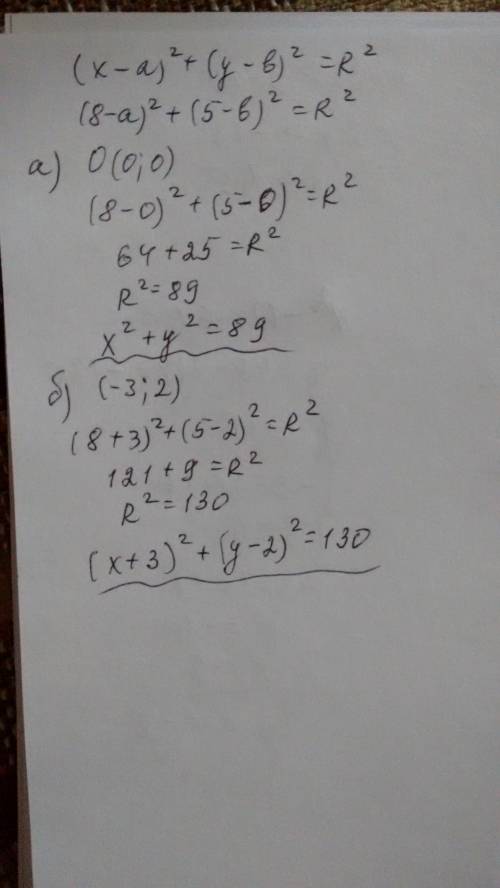 (x-a)² + (y-в)² = R²
(8-a)² + (5-в)² = R²
а) O(0;0)
(8-0)² + (5-0)² = R²
64 + 25 = R²
R² = 89
x² + y² = 89
б) (-3; 2)
(8+3)² + (5-2)² = R²
121 + 9 = R²
R² = 130
(x+3)² + (y-2)² = 130